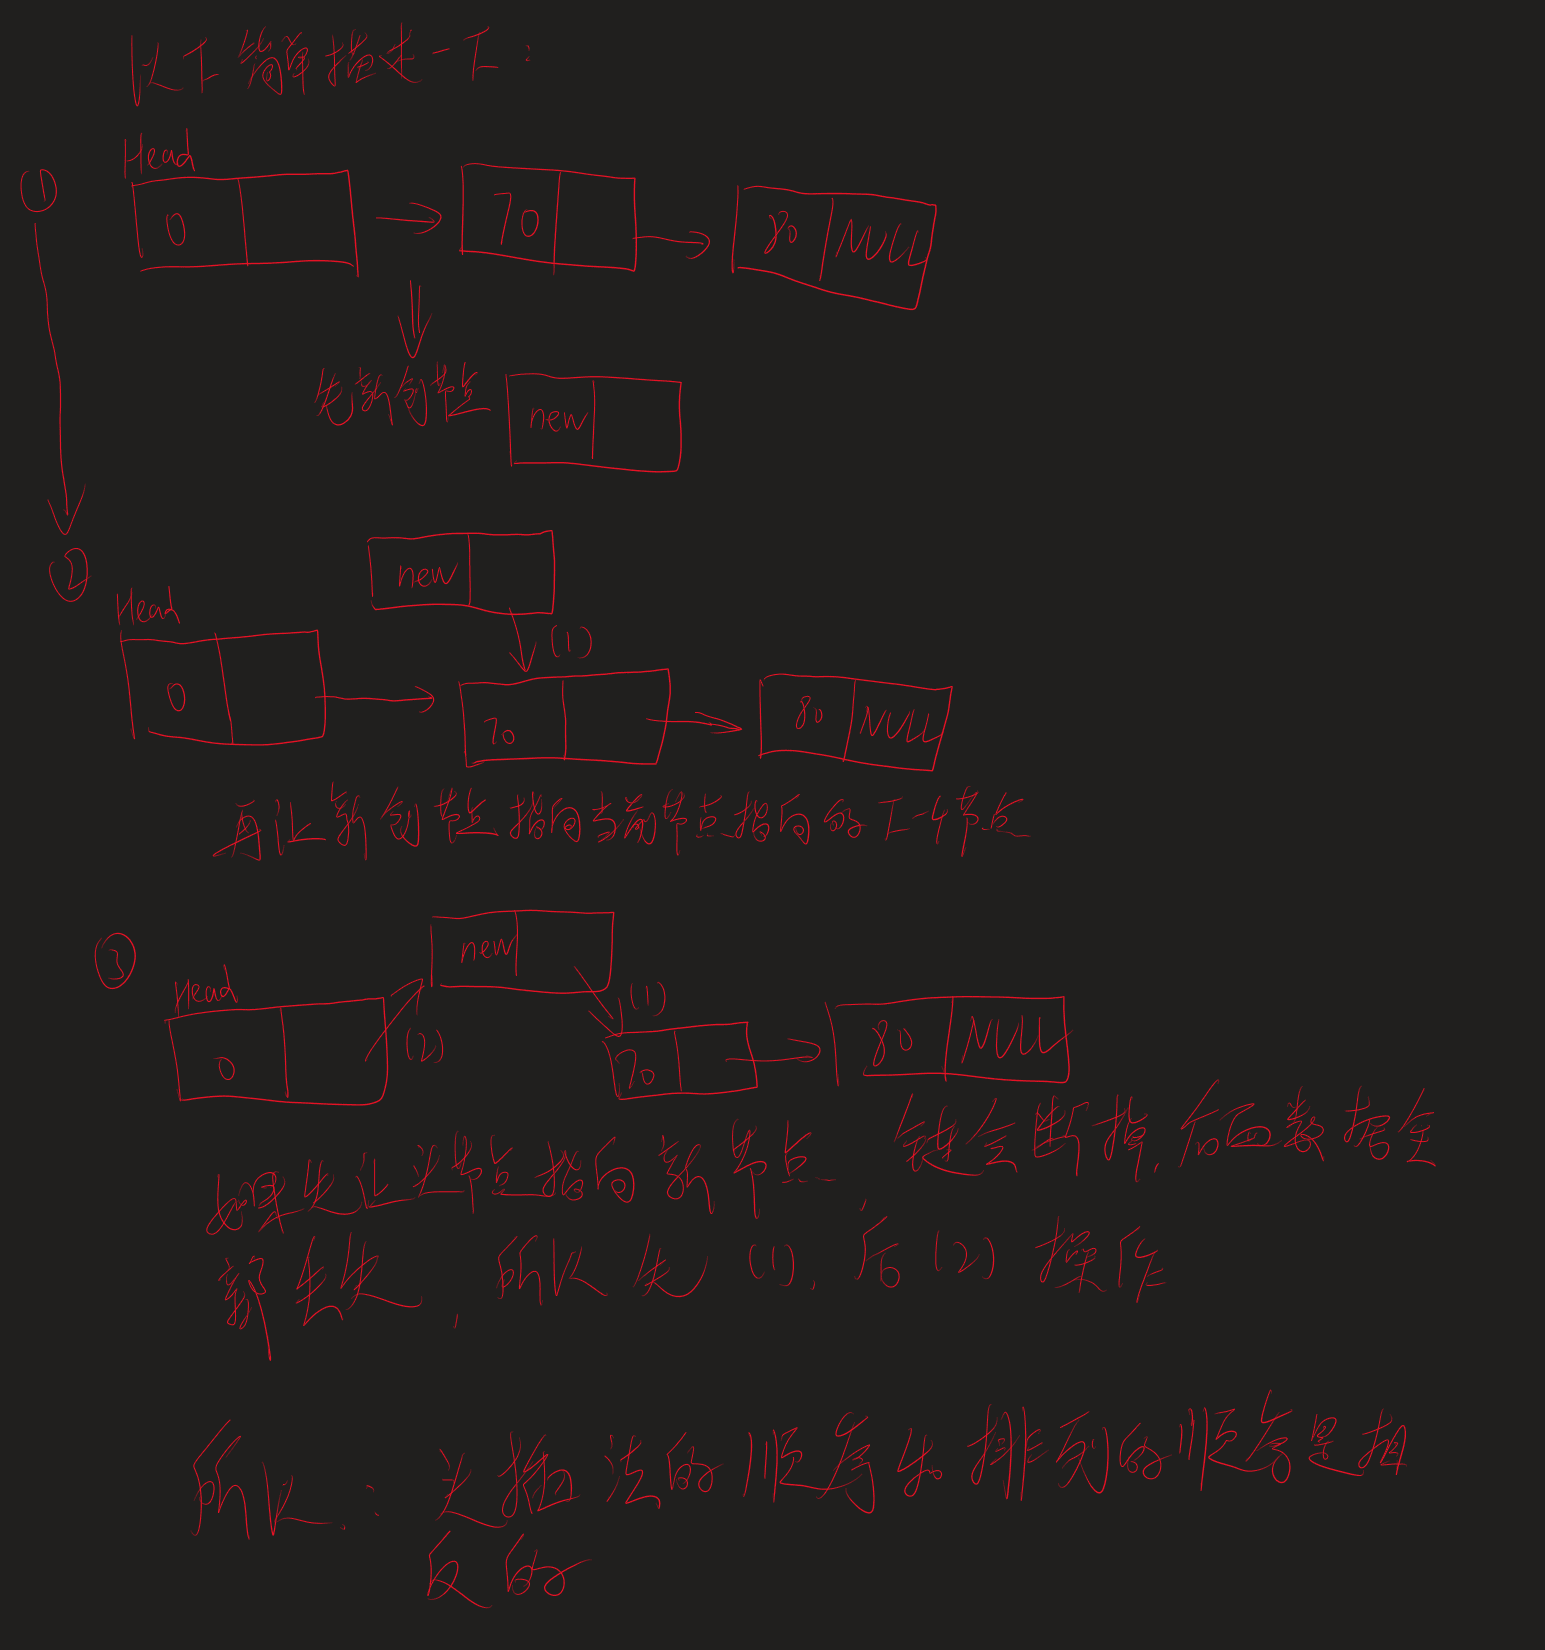 以下简单描述一下：
Head
①
0 70 80 NULL
先新创节点 new
②
new
Head
(1)
0 70 80 NULL
再让新创节点指向当前节点指向的下一个节点
③
new
Head
(1)
(2)
0 70 80 NULL
如果先让头节点指向新节点，链会断掉，后面数据全
部丢失，所以先(1)，后(2)操作
所以：头插法的顺序和排列的顺序是相
反的